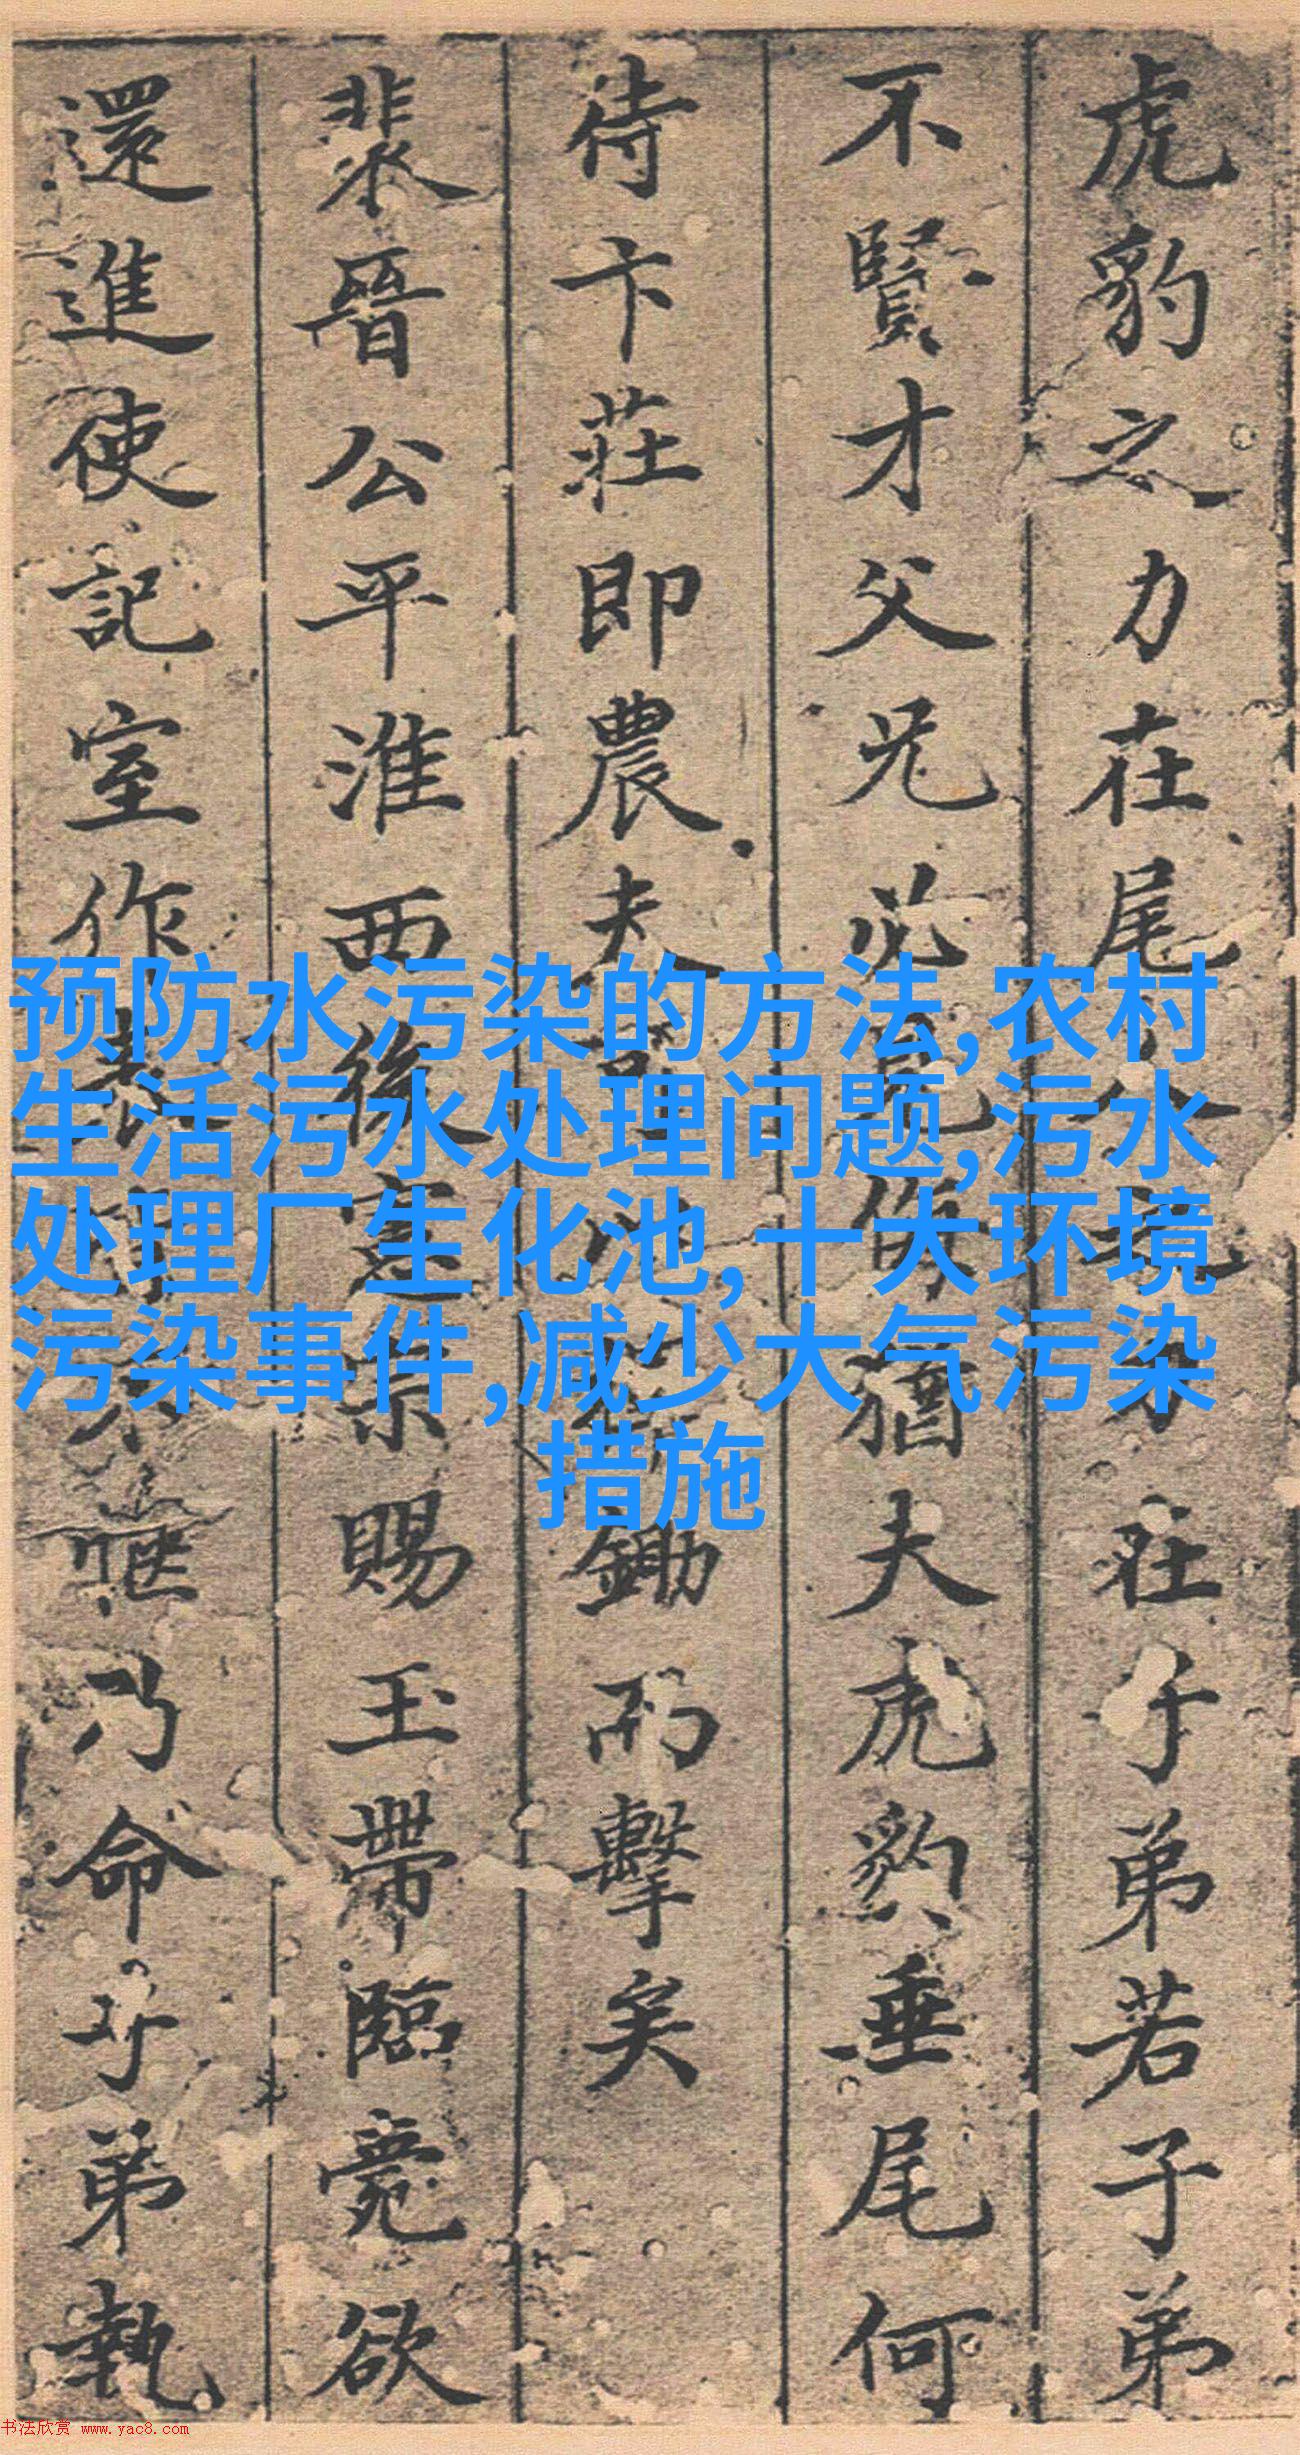 虎豹之力在尾人之力在子弟若子弟
不賢才父兄必見侮猶夫虎豹垂尾何
待卞莊即農夫可以荷鋤而擊矣
裴晉公平淮西後憲宗賜玉帶臨薨欲
還進使記室作表皆不愜乃命子弟執
预防水污染的方法,农村
生活污水处理问题,污水
处理厂生化池,十大环境
污染事件,减少大气污染
措施
书法欣赏 www.yac8.com